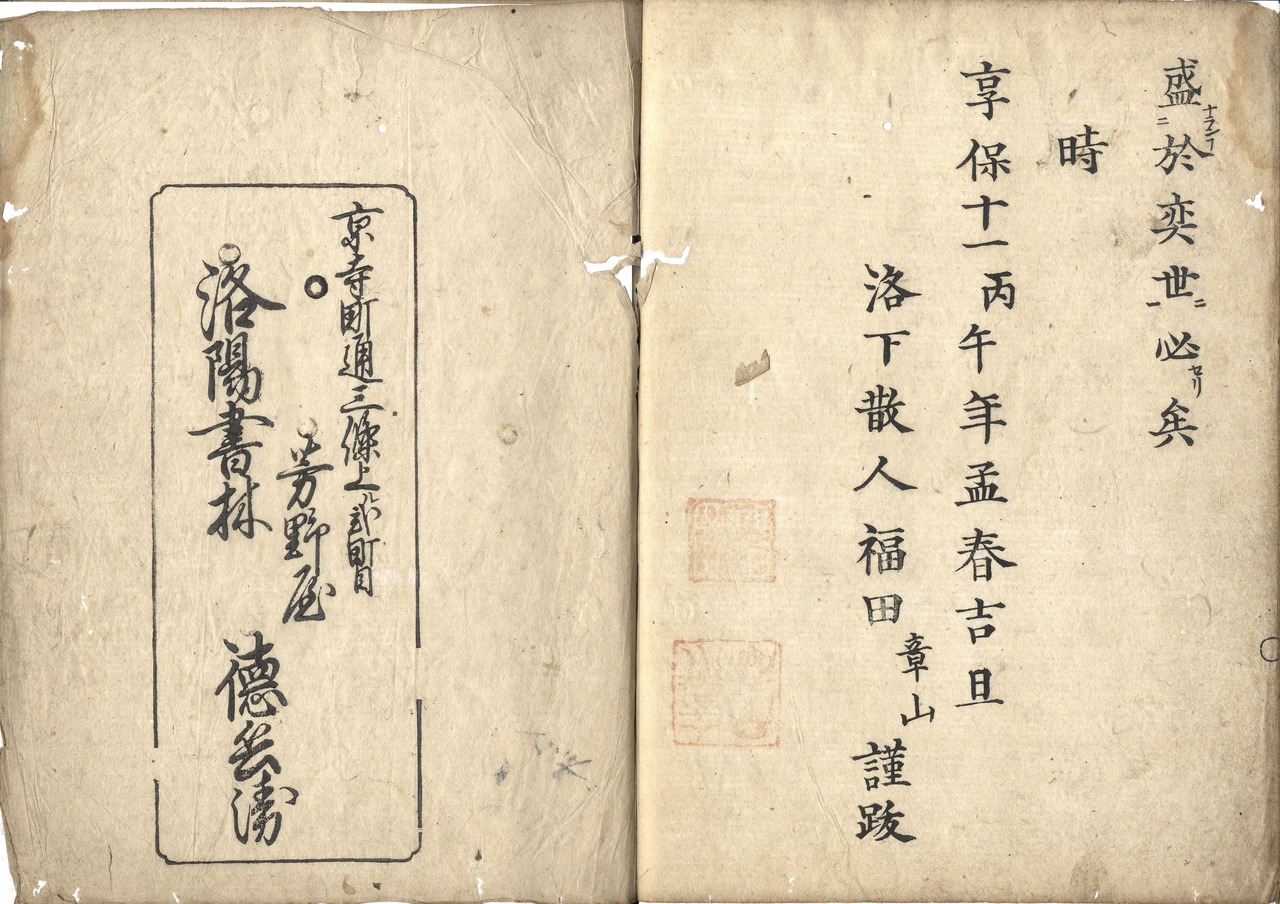 盛ナラン丁於奕世必セリ矣
時
享保十一丙午年孟春吉旦
洛下散人福田章山謹跋
京寺町通三條上ル弐町目
芳野屋
洛陽書林 德兵衛